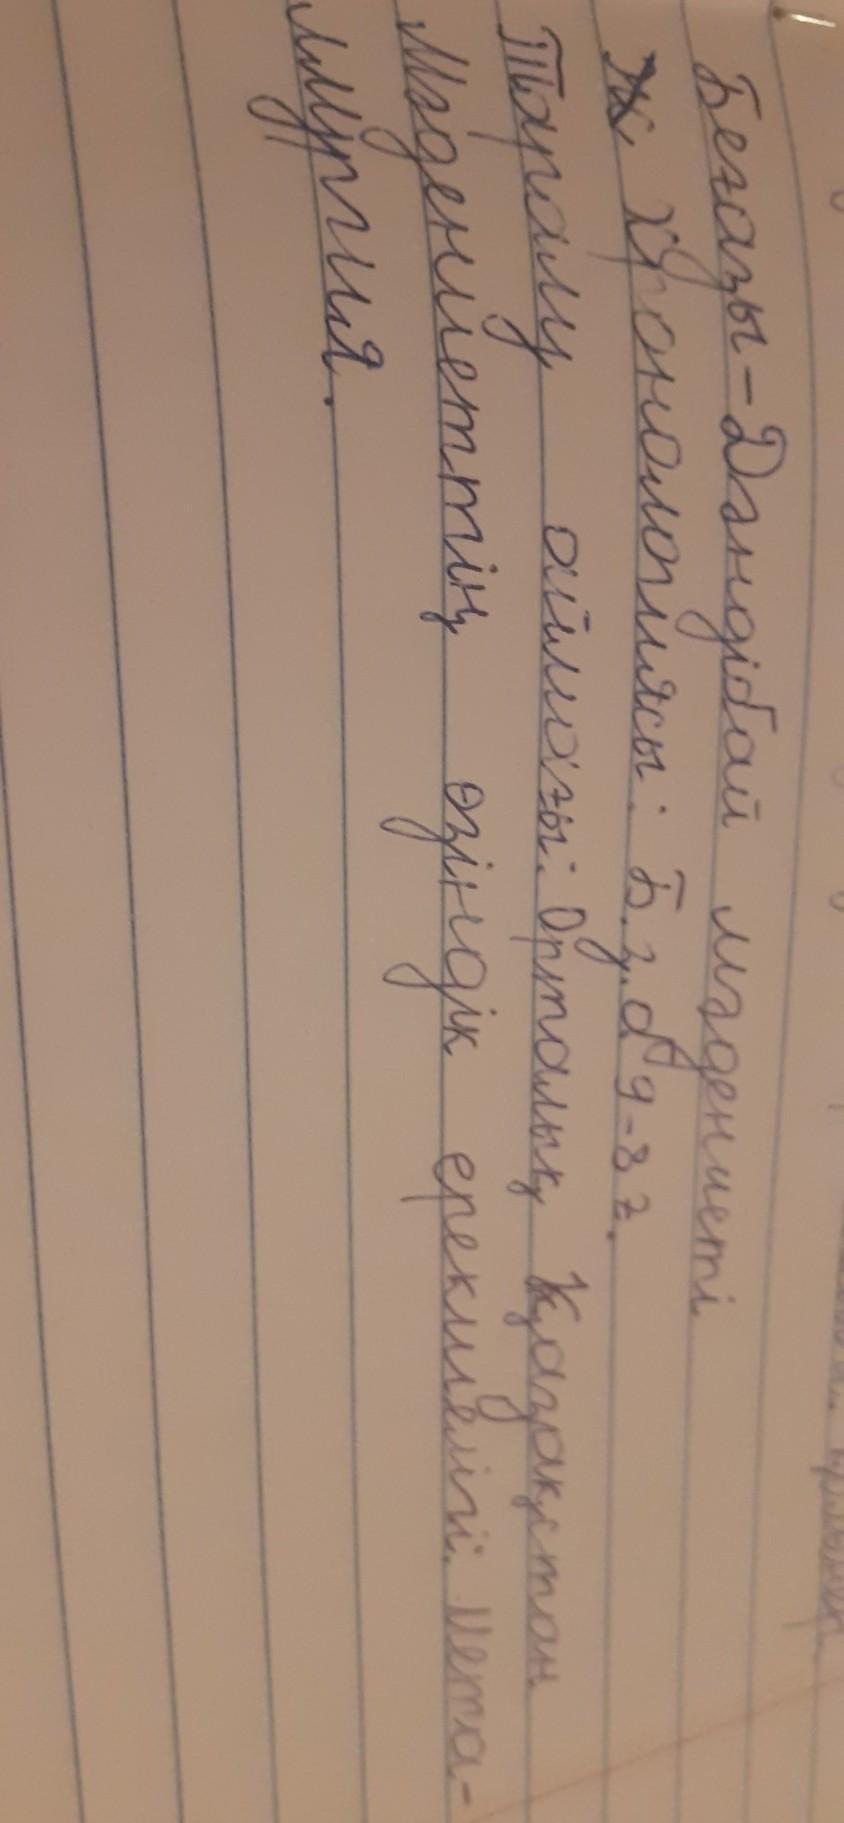 Беғазы-Дәндібай мәдениеті
Хронологиясы: Б.з.д 9-8 ғ.
Таралу аймағы: Орталық Қазақстан
Мәдениеттің өзіндік ерекшелігі: Мета-
ллургия.